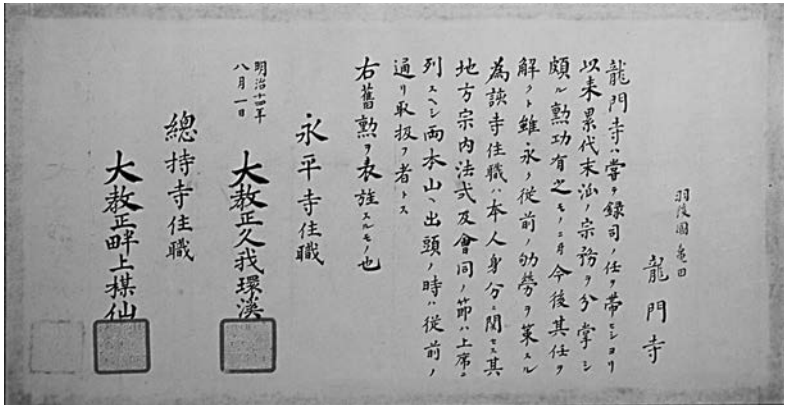 羽後國亀田
龍門寺
龍門寺ハ嘗テ録司ノ任ヲ帯ヒシヨリ
以来累代末派ノ宗務ヲ分掌シ
頗ル勲功有之モノニ付今後其任ヲ
解クト雖永ク従前ノ劬労ヲ策スル
為該寺住職ハ本人身分ニ関セス其
地方宗内法式及會同ノ節ハ上席ニ
列スヘシ両本山ヘ出頭ノ時ハ従前ノ
通リ取扱フ者トス
右舊勲ヲ表旌スルモノ也
永平寺住職
大教正久我環溪
明治十四年
八月一日
總持寺住職
大教正畔上楳仙